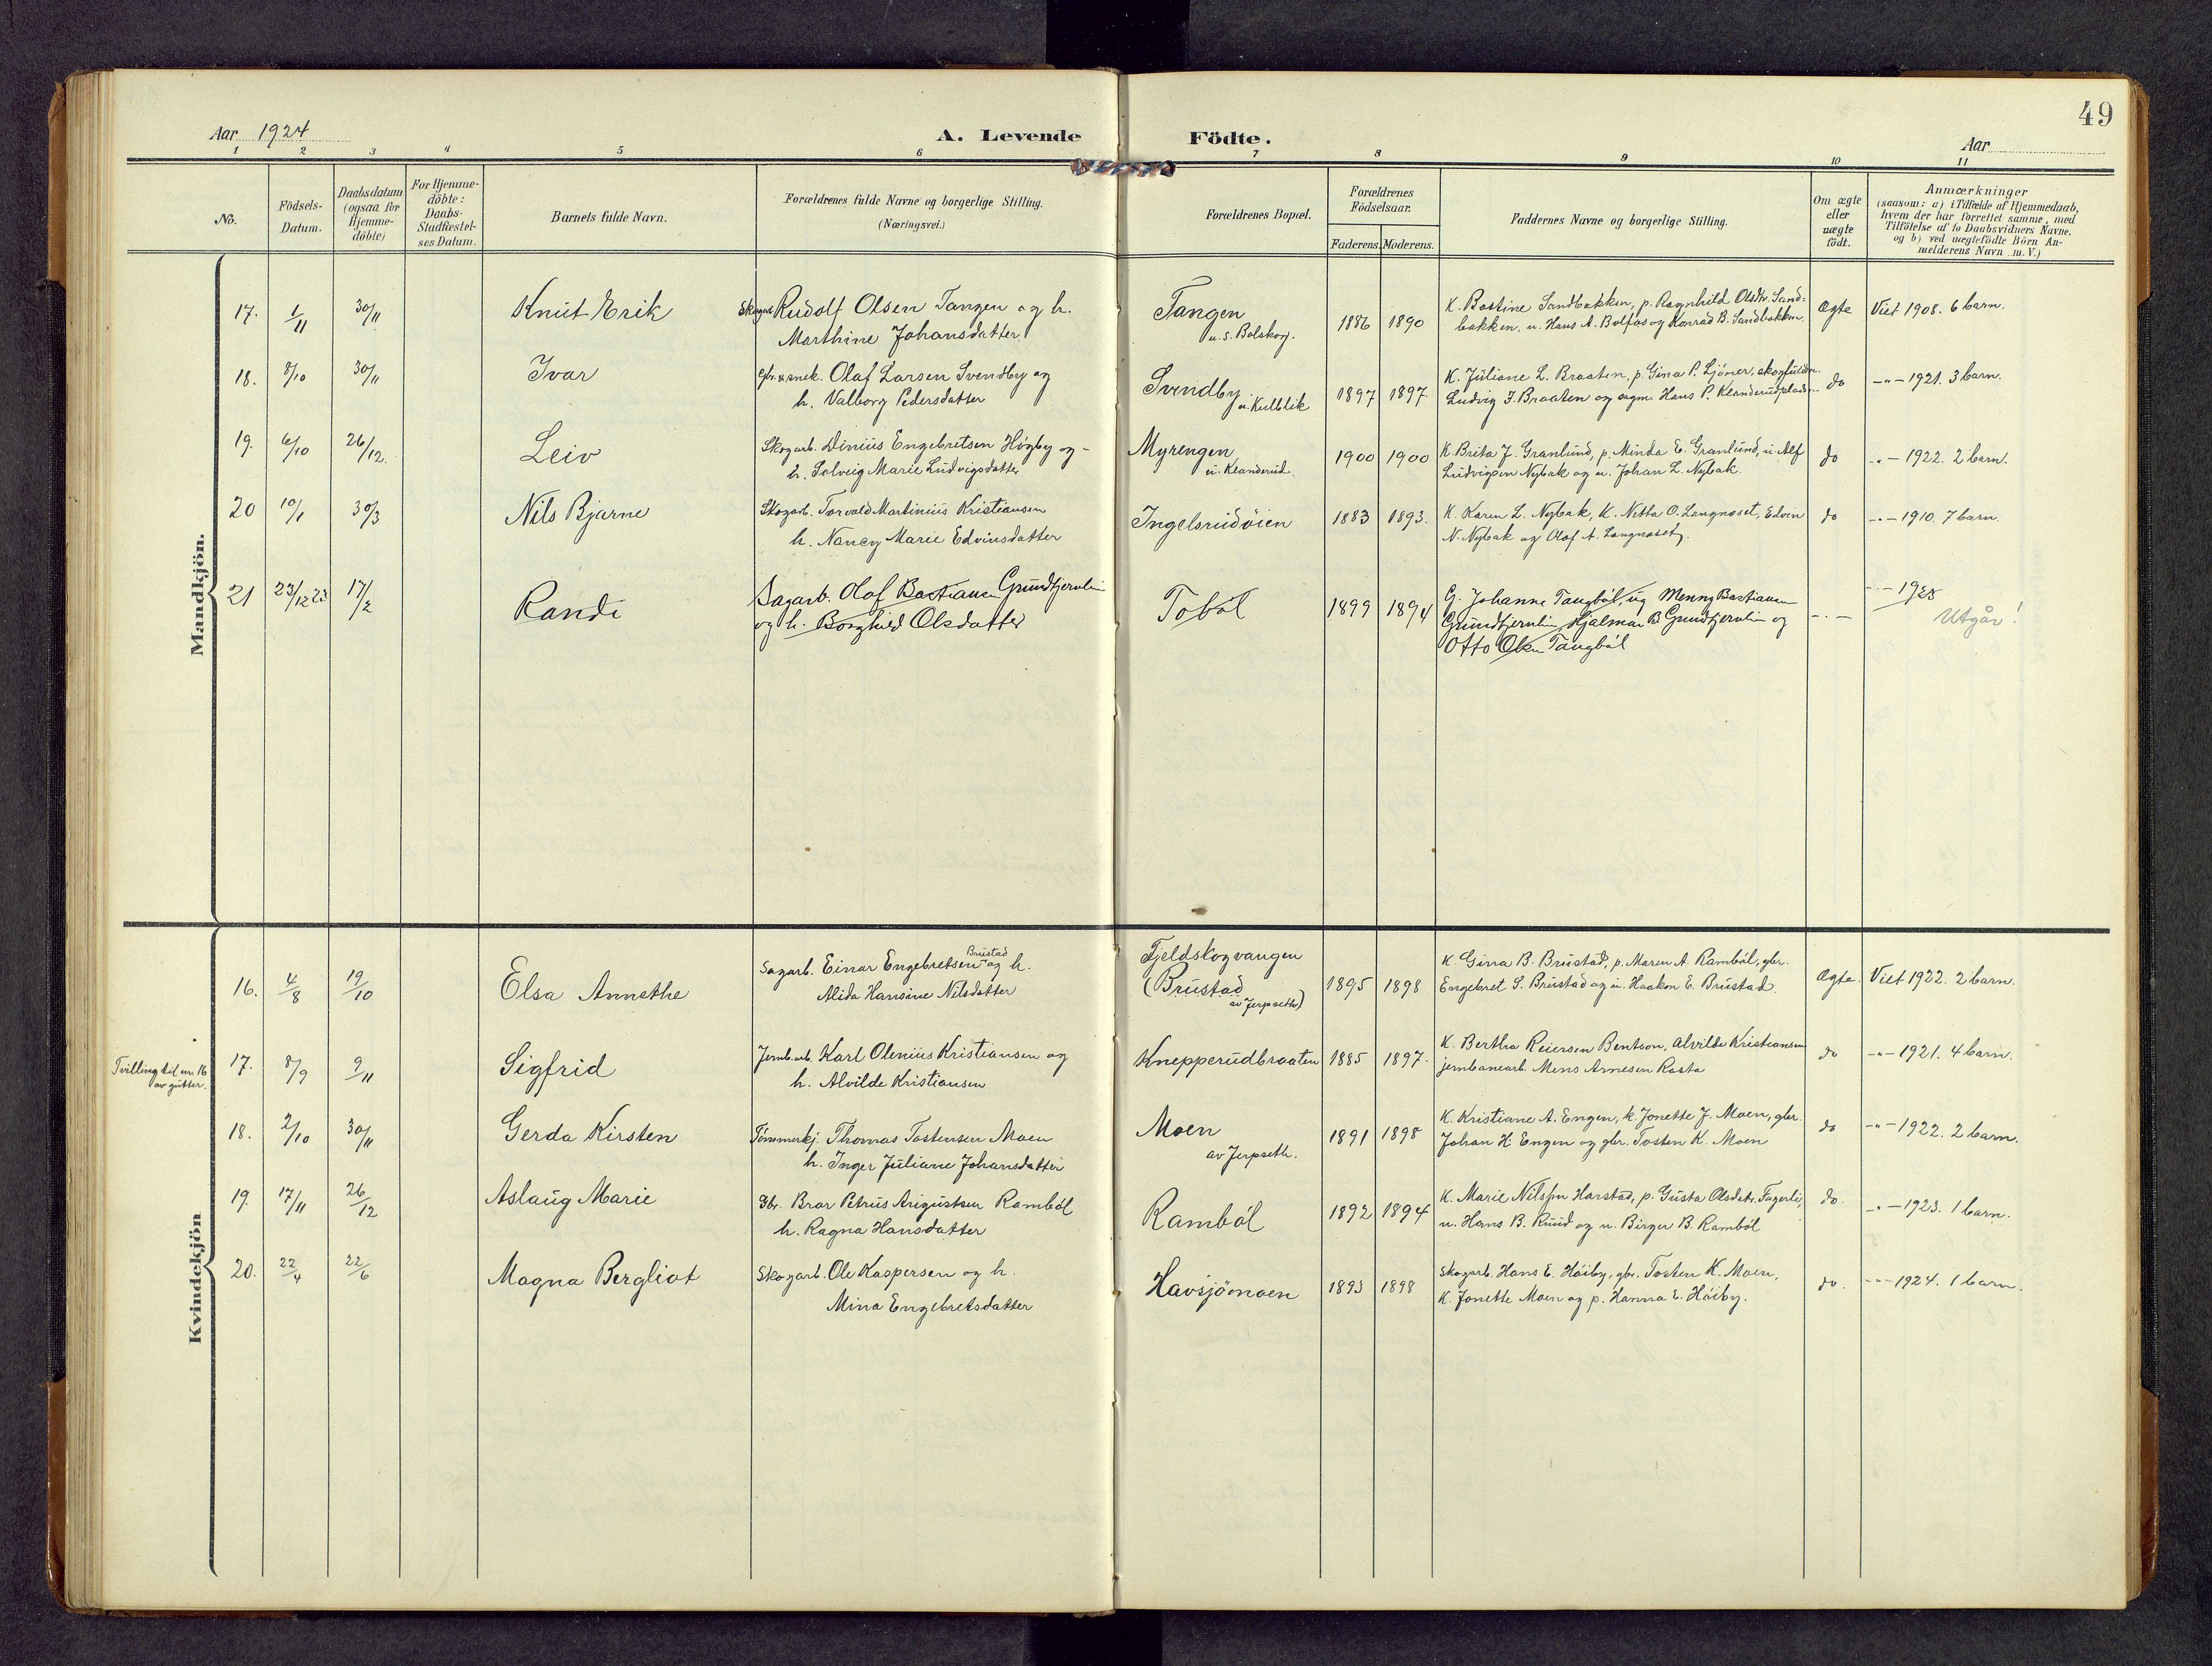 49
Aar 1924
A. Levende Födte.
Aar
1 2 3 4 5 6 7 8 9 10 11
No.
Födsels-Datum.
Daabsdatum (ogsaa for Hjemme-döbte)
For Hjemme-döbte: Daabs-Stadfæstel-ses Datum.
Barnets fulde Navn.
Forældrenes fulde Navne og borgerlige Stilling.
(Næringsvei.)
Forældrenes Bopæl.
Forældrenes Födselsaar.
Faderens. Moderens.
Faddernes Navne og borgerlige Stilling.
Om ægte eller uægte födt.
Anmærkninger
(saasom: a) i Tilfælde af Hjemmedaab,
hvem der har forrettet samme, med
Tilföielse af to Daabsvidners Navne.
og b) ved uægtefödte Börn An-
melderens Navn m. V.)
Mandkjön.
17. 1/11 30/11 Knut Erik
Skogarb. Rudolf Olsen Tangen og h.
Marthine Johansdatter
Tangen
u. s. Bolskog.
1886 1890
K. Bastine Sandbakken, p. Ragnhild Olsdtr. Sand-
bakken, u. Hans A. Bolfos og Konrad B. Sandbakken.
Ægte Viet 1908. 6 barn.
18. 8/10 30/11 Ivar
Olaf Larsen Svendby og
h. Valborg Pedersdatter
Svendby
u. Kulblik
1897 1897.
K. Juliane L. Braaten, p. Gina P. Ljöner,
Ludvig J. Braaten og Hans P.
do -"- 1921. 3 barn.
19. 6/10 26/12. Leiv
Skogarb. Dinius Engebretsen Högby og -
h. Solveig Marie Ludvigsdatter
Myrengen
u. Klanderud.
1900 1900
K. Brita J. Granlund, p. Minda E. Granlund, u. Alf
Ludvigsen Nybak og u. Johan L. Nybak.
do -"- 1922. 2 barn.
20 10/1 30/3 Nils Bjarne
Skogarb. Torvald Martinius Kristiansen
h. Nancy Marie Edvinsdatter
Ingelsrudöien
1883 1893.
K. Karen L. Nybak, K. Netta O. Langnaset, Edvin
N. Nybak og Olaf A. Langnaset.
do -"- 1910. 7 barn.
21 23/12 23 17/2 Randi
Sagarb. Olaf Bastiansen Grundtjernlien
og h. Borghild Olsdatter
Toböl
1899 1894
Gj. Johanne Tangböl, ug Menny Bastiansen
Grundtjernlien Hjalmar B. Grundtjernlien og
Otto Olsen Tangböl
-"- -"- 1923
Utgår!
Kvindekjön
16. 4/8 19/10 Elsa Annethe
Brustad
Sagarb. Einar Engebretsen og h.
Alida Hansine Nilsdatter
Fjeldskogvangen
(Brustad
av Jerpseth)
1895 1898
K. Gina B. Brustad, p. Maren A. Ramböl, gbr.
Engebret S. Brustad og u. Haakon E. Brustad.
Ægte. Viet 1922. 2 barn.
Tvilling til nr. 16
av gutter.
17. 8/9 9/11 Sigfrid
Jernb.arb. Karl Olenius Kristiansen og
h. Alvilde Kristiansen
Knepperudbraaten
1885 1897.
K. Bertha Reiersen Bentson, Alvilde Kristiansen
jernbanearb. Mens Arnesen Rasta
do -"- 1921. 4 barn.
18. 2/10 30/11 Gerda Kirsten
Tömmerkj. Thomas Tostensen Moen
h. Inger Juliane Johansdatter
Moen
av Jerpseth.
1891 1898
K. Kristiane A. Engen, k. Jonette J. Moen, gbr.
Johan H Engen og gbr. Tosten K. Moen
do -"- 1922. 2 barn.
19. 17/11 26/12 Aslaug Marie
Gbr. Bror Petrus Augustsen Ramböl
h. Ragna Hansdatter
Ramböl
1892 1894
K. Marie Nilssen Harstad, p. Gusta Olsdtr. Fagerli,
u. Hans B. Ruud og u. Birger B. Ramböl
do. -"- 1923. 1 barn.
20. 22/4 22/6 Magna Bergliot
Skogarb. Ole Kaspersen og h.
Mina Engebretsdatter
Havsjömoen
1893 1898
Skogarb. Hans E. Höiby, gbr. Tosten K. Moen,
K. Jonette Moen og p. Hanna E. Höiby.
do. -"- 1924. 1 barn.